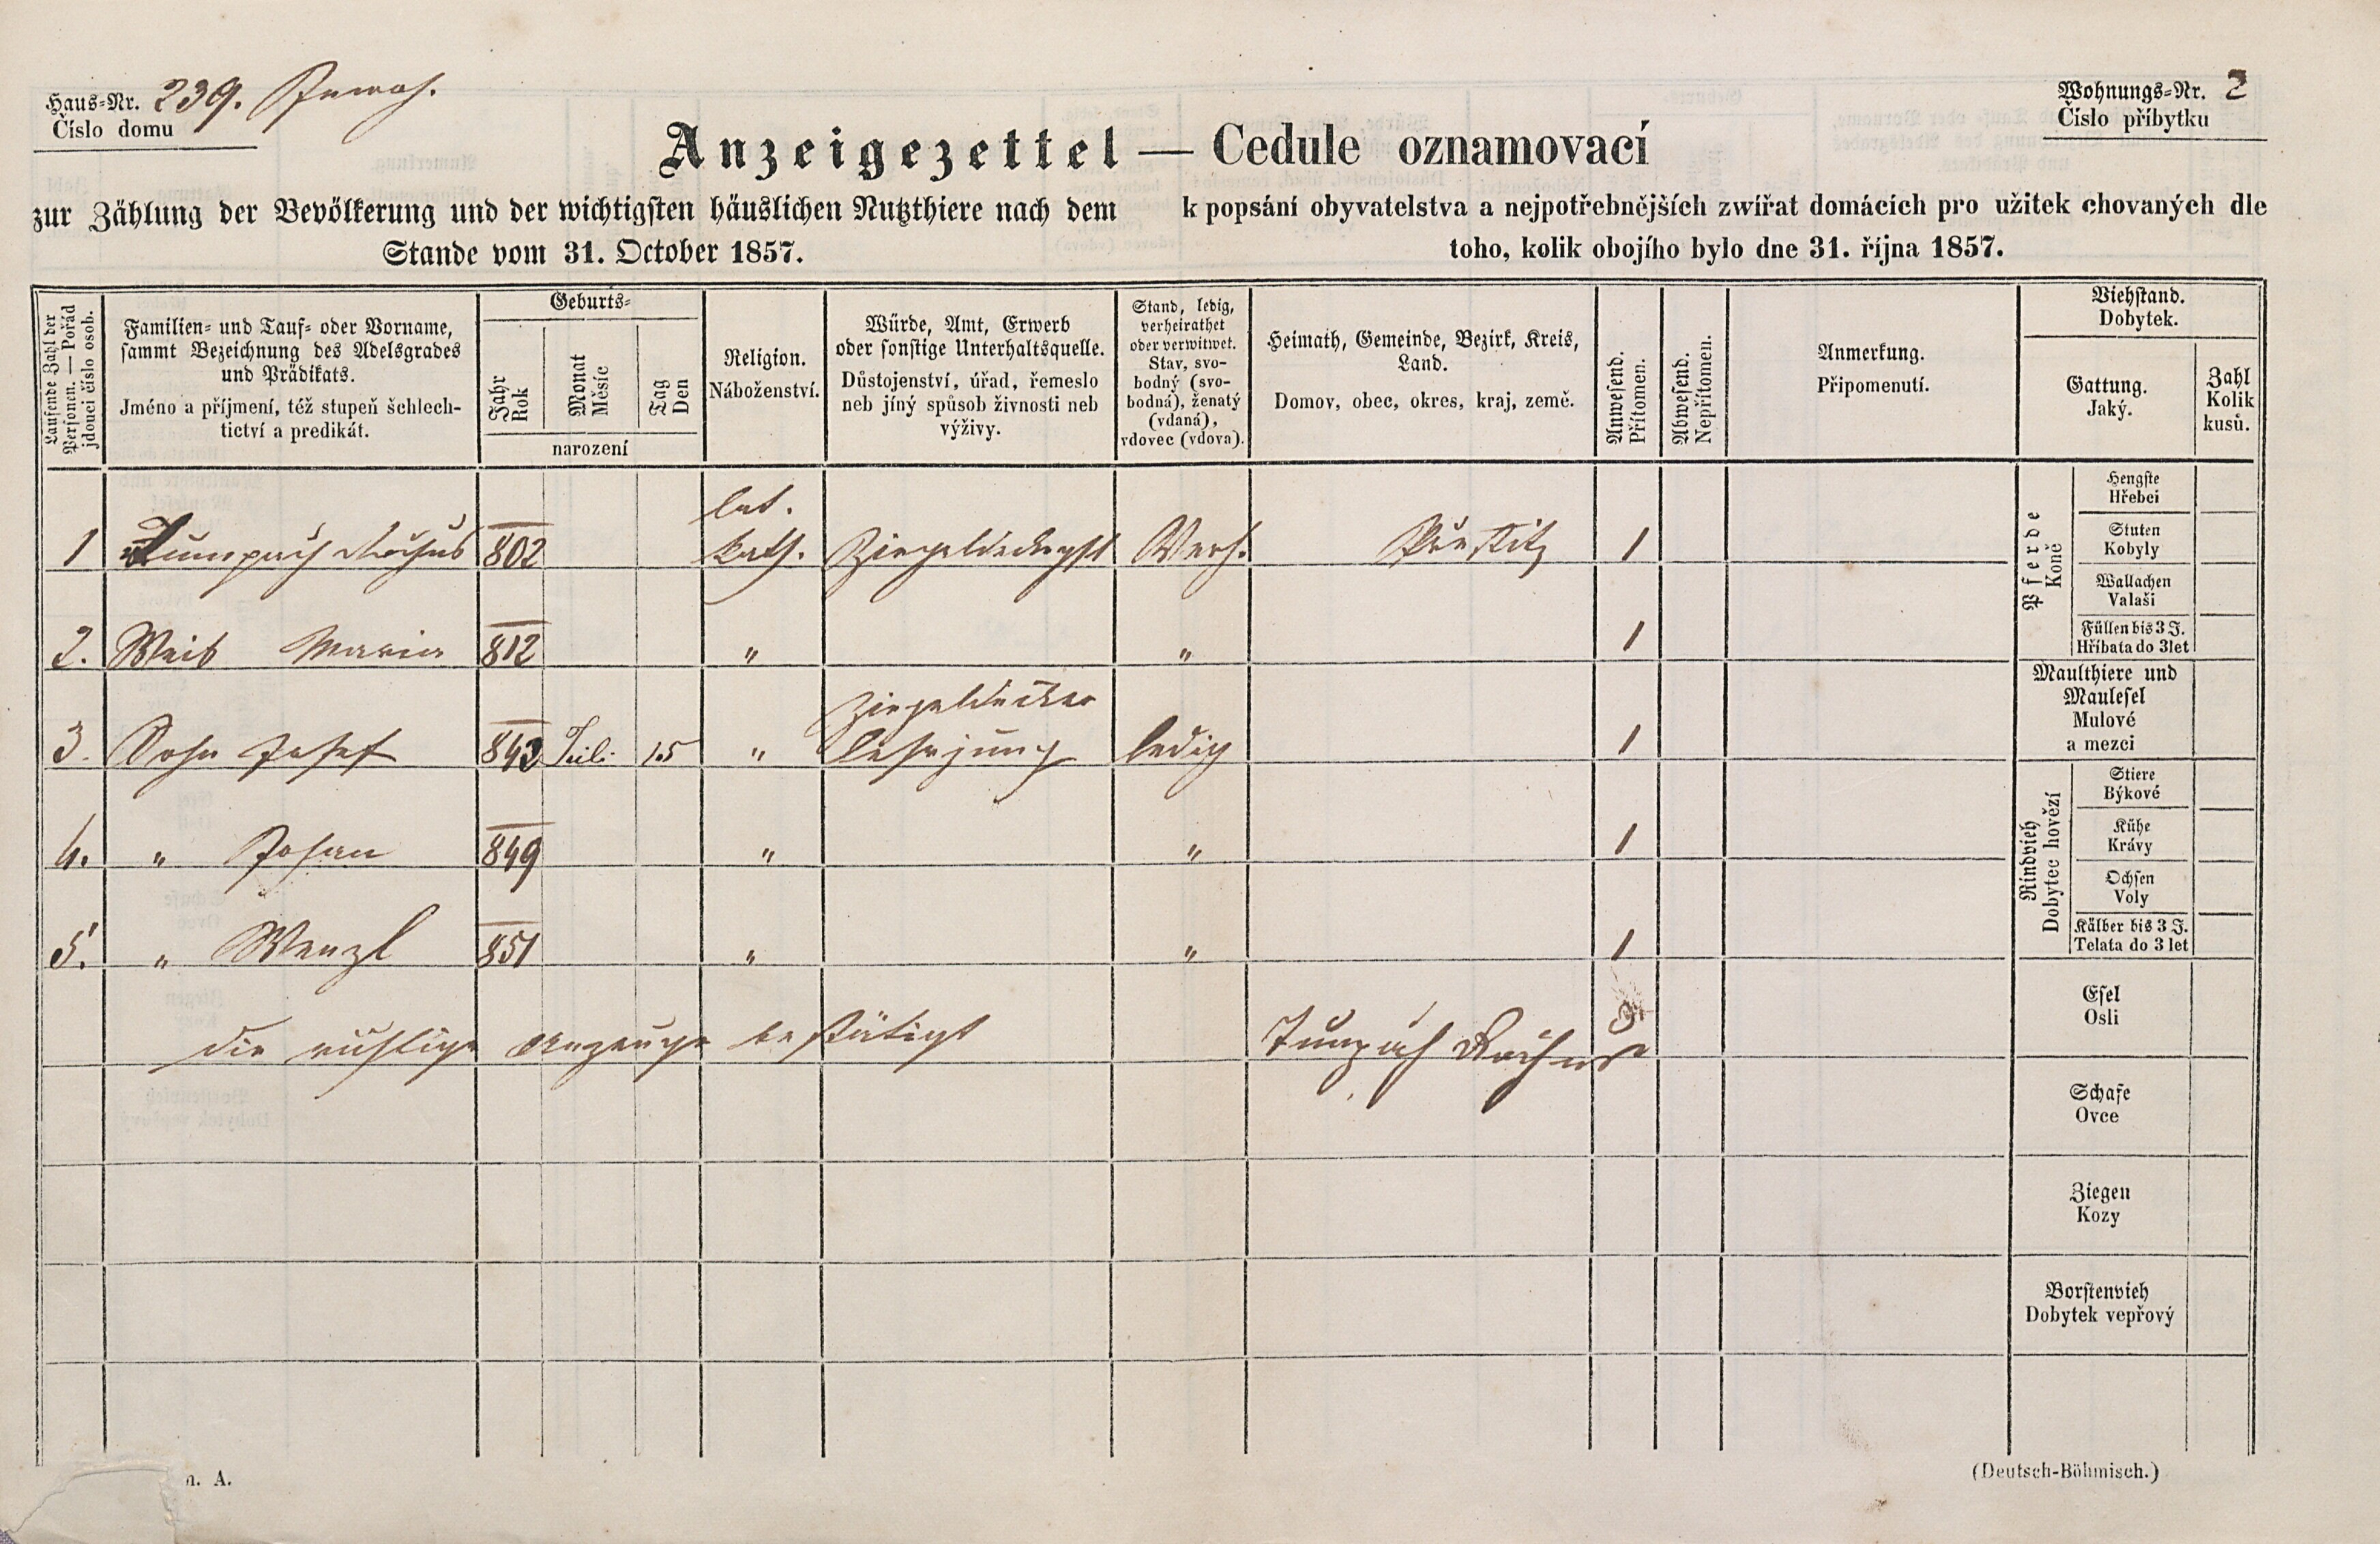 Haus-Nr. 239. Inwoh.
Číslo domu
Wohnungs-Nr. 2
Číslo příbytku
Anzeigezettel — Cedule oznamovací
zur Zählung der Bevölkerung und der wichtigsten häuslichen Nutzthiere nach dem
Stande vom 31. October 1857.
k popsání obyvatelstva a nejpotřebnějších zwířat domácích pro užitek chovaných dle
toho, kolik obojího bylo dne 31. října 1857.
Laufende Zahl der
Personen. — Pořád
jdoucí číslo osob.
Familien- und Tauf- oder Vorname,
sammt Bezeichnung des Adelsgrades
und Prädikats.
Jméno a příjmení, též stupeň šchlech-
tictví a predikát.
Geburts-
Jahr
Rok
Monat
Měsíc
Tag
Den
narození
Religion.
Náboženství.
Würde, Amt, Erwerb
oder sonstige Unterhaltsquelle.
Důstojenství, úřad, řemeslo
neb jíný spůsob živnosti neb
výživy.
Stand, ledig,
verheirathet
oder verwitwet.
Stav, svo-
bodný (svo-
bodná), ženatý
(vdaná),
vdovec (vdova).
Heimath, Gemeinde, Bezirk, Kreis,
Land.
Domov, obec, okres, kraj, země.
Anwesend.
Přítomen.
Abwesend.
Nepřítomen.
Anmerkung.
Připomenutí.
Viehstand.
Dobytek.
Gattung.
Jaký.
Zahl
Kolik
kusů.
kat.
1 Tumpach Rochus 802 kath. Ziegeldeckergsl Verh. Přestitz 1
2. Weib Maria 812 " " 1
Ziegeldecker
3. Sohn Josef 843 Juli 15 " Lehrjung ledig 1
4. " Johan 849 " " 1
5. " Wenzl 851 " " 1
die richtige Anzeuge bestätigt Tumpach Rochus
Pferde
Koně
Hengste
Hřebci
Stuten
Kobyly
Wallachen
Valaši
Füllen bis 3 J.
Hříbata do 3 let
Maulthiere und
Maulesel
Mulové
a mezci
Rindvieh
Dobytec hovězí
Stiere
Býkové
Kühe
Krávy
Ochsen
Voly
Kälber bis 3 J.
Telata do 3 let
Esel
Osli
Schafe
Ovce
Ziegen
Kozy
Borstenvieh
Dobytek vepřový
n. A.
(Deutsch-Böhmisch.)